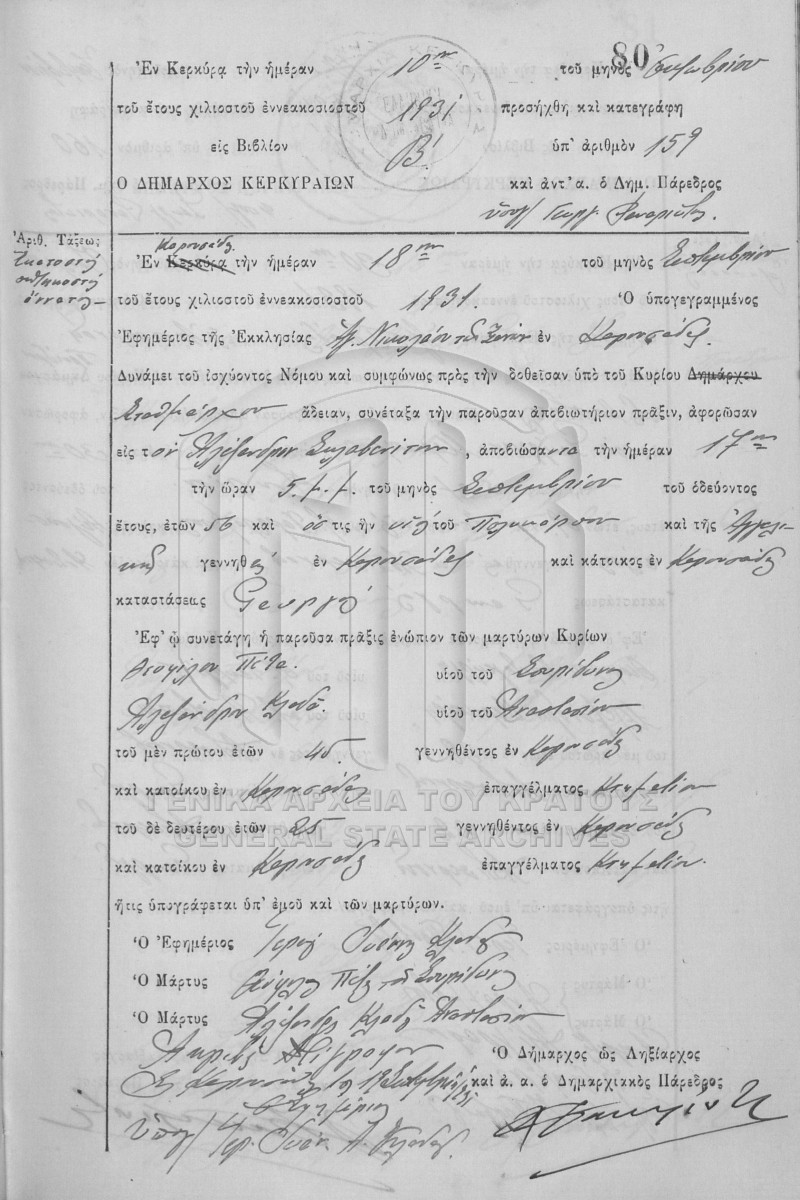 80
Ἐν Κερκύρᾳ τὴν ἡμέραν 10ην τοῦ μηνὸς Ὀκτωβρίου
τοῦ ἔτους χιλιοστοῦ ἐννεακοσιοστοῦ 1931 προσήχθη καὶ κατεγράφη
εἰς Βιβλίον Β' ὑπ' ἀριθμὸν 159
Ο ΔΗΜΑΡΧΟΣ ΚΕΡΚΥΡΑΙΩΝ καὶ ἀντ' α. ὁ Δημ. Πάρεδρος
ὑπογ/ Γεωργ.
Ἀριθ. Τάξεως
ἑκατοστή
πεντηκοστή
ἐννάτη
Καρουσάδες
Ἐν Κερκύρᾳ τὴν ἡμέραν 18ην τοῦ μηνὸς Σεπτεμβρίου
τοῦ ἔτους χιλιοστοῦ ἐννεακοσιοστοῦ 1931. Ὁ ὑπογεγραμμένος
Ἐφημέριος τῆς Ἐκκλησίας Ἁγ. Νικολάου τῶν Ξένων ἐν Καρουσάδες
Δυνάμει τοῦ ἰσχύοντος Νόμου καὶ συμφώνως πρὸς τὴν δοθεῖσαν ὑπὸ τοῦ Κυρίου Δημάρχου
Σταθμάρχου ἄδειαν, συνέταξα τὴν παροῦσαν ἀποβιωτήριον πρᾶξιν, ἀφορῶσαν
εἰς τὸν Ἀλέξανδρον Σκλαβενίτην, ἀποβιώσαντα τὴν ἡμέραν 17ην
τὴν ὥραν 5 μ.μ. τοῦ μηνὸς Σεπτεμβρίου τοῦ ὁδεύοντος
ἔτους, ἐτῶν 56 καὶ ὅστις ἦν υἱὸς τοῦ Πολυκάρπου καὶ τῆς Ἀγγελι-
κῆς γεννηθεὶς ἐν Καρουσάδες καὶ κάτοικος ἐν Καρουσάδες
καταστάσεως Γεωργός
Ἐφ' ᾧ συνετάγη ἡ παροῦσα πρᾶξις ἐνώπιον τῶν μαρτύρων Κυρίων
Θεοφίλου Πέτα. υἱοῦ τοῦ Σπυρίδωνος
Ἀλεξάνδρου Κλαδᾶ. υἱοῦ τοῦ Ἀναστασίου
τοῦ μὲν πρώτου ἐτῶν 45. γεννηθέντος ἐν Καρουσάδες
καὶ κατοίκου ἐν Καρουσάδες ἐπαγγέλματος Κτηματίου
τοῦ δὲ δευτέρου ἐτῶν 25 γεννηθέντος ἐν Καρουσάδες
καὶ κατοίκου ἐν Καρουσάδες ἐπαγγέλματος Κτηματίου.
ἥτις ὑπογράφεται ὑπ' ἐμοῦ καὶ τῶν μαρτύρων.
Ὁ Ἐφημέριος Ἱερεὺς Ἰωάννης Κλαδᾶς
Ὁ Μάρτυς Θεόφιλος Πέτας τοῦ Σπυρίδωνος
Ὁ Μάρτυς Ἀλέξανδρος Κλαδᾶς Ἀναστασίου
Ἀκριβὲς Ἀντίγραφον Ὁ Δήμαρχος ὡς Ληξίαρχος
Ἐν Καρουσάδες τῇ 19 Σεπτεμβρίου 1931 καὶ ἀ. α. ὁ Δημαρχιακὸς Πάρεδρος
Ὁ Ἐφημέριος
Ὑπογ/ Ἱερ. Ἰωάν. Α. Κλαδᾶς
ΓΕΝΙΚΑ ΑΡΧΕΙΑ ΤΟΥ ΚΡΑΤΟΥΣ
GENERAL STATE ARCHIVES